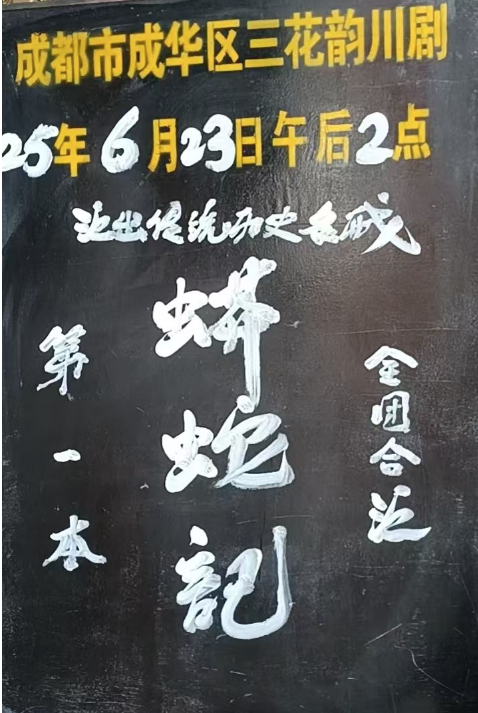 成都市成华区三花韵川剧
25年6月23日午后2点
演出传统历史长戏
蟒蛇记
第一本
全团合演